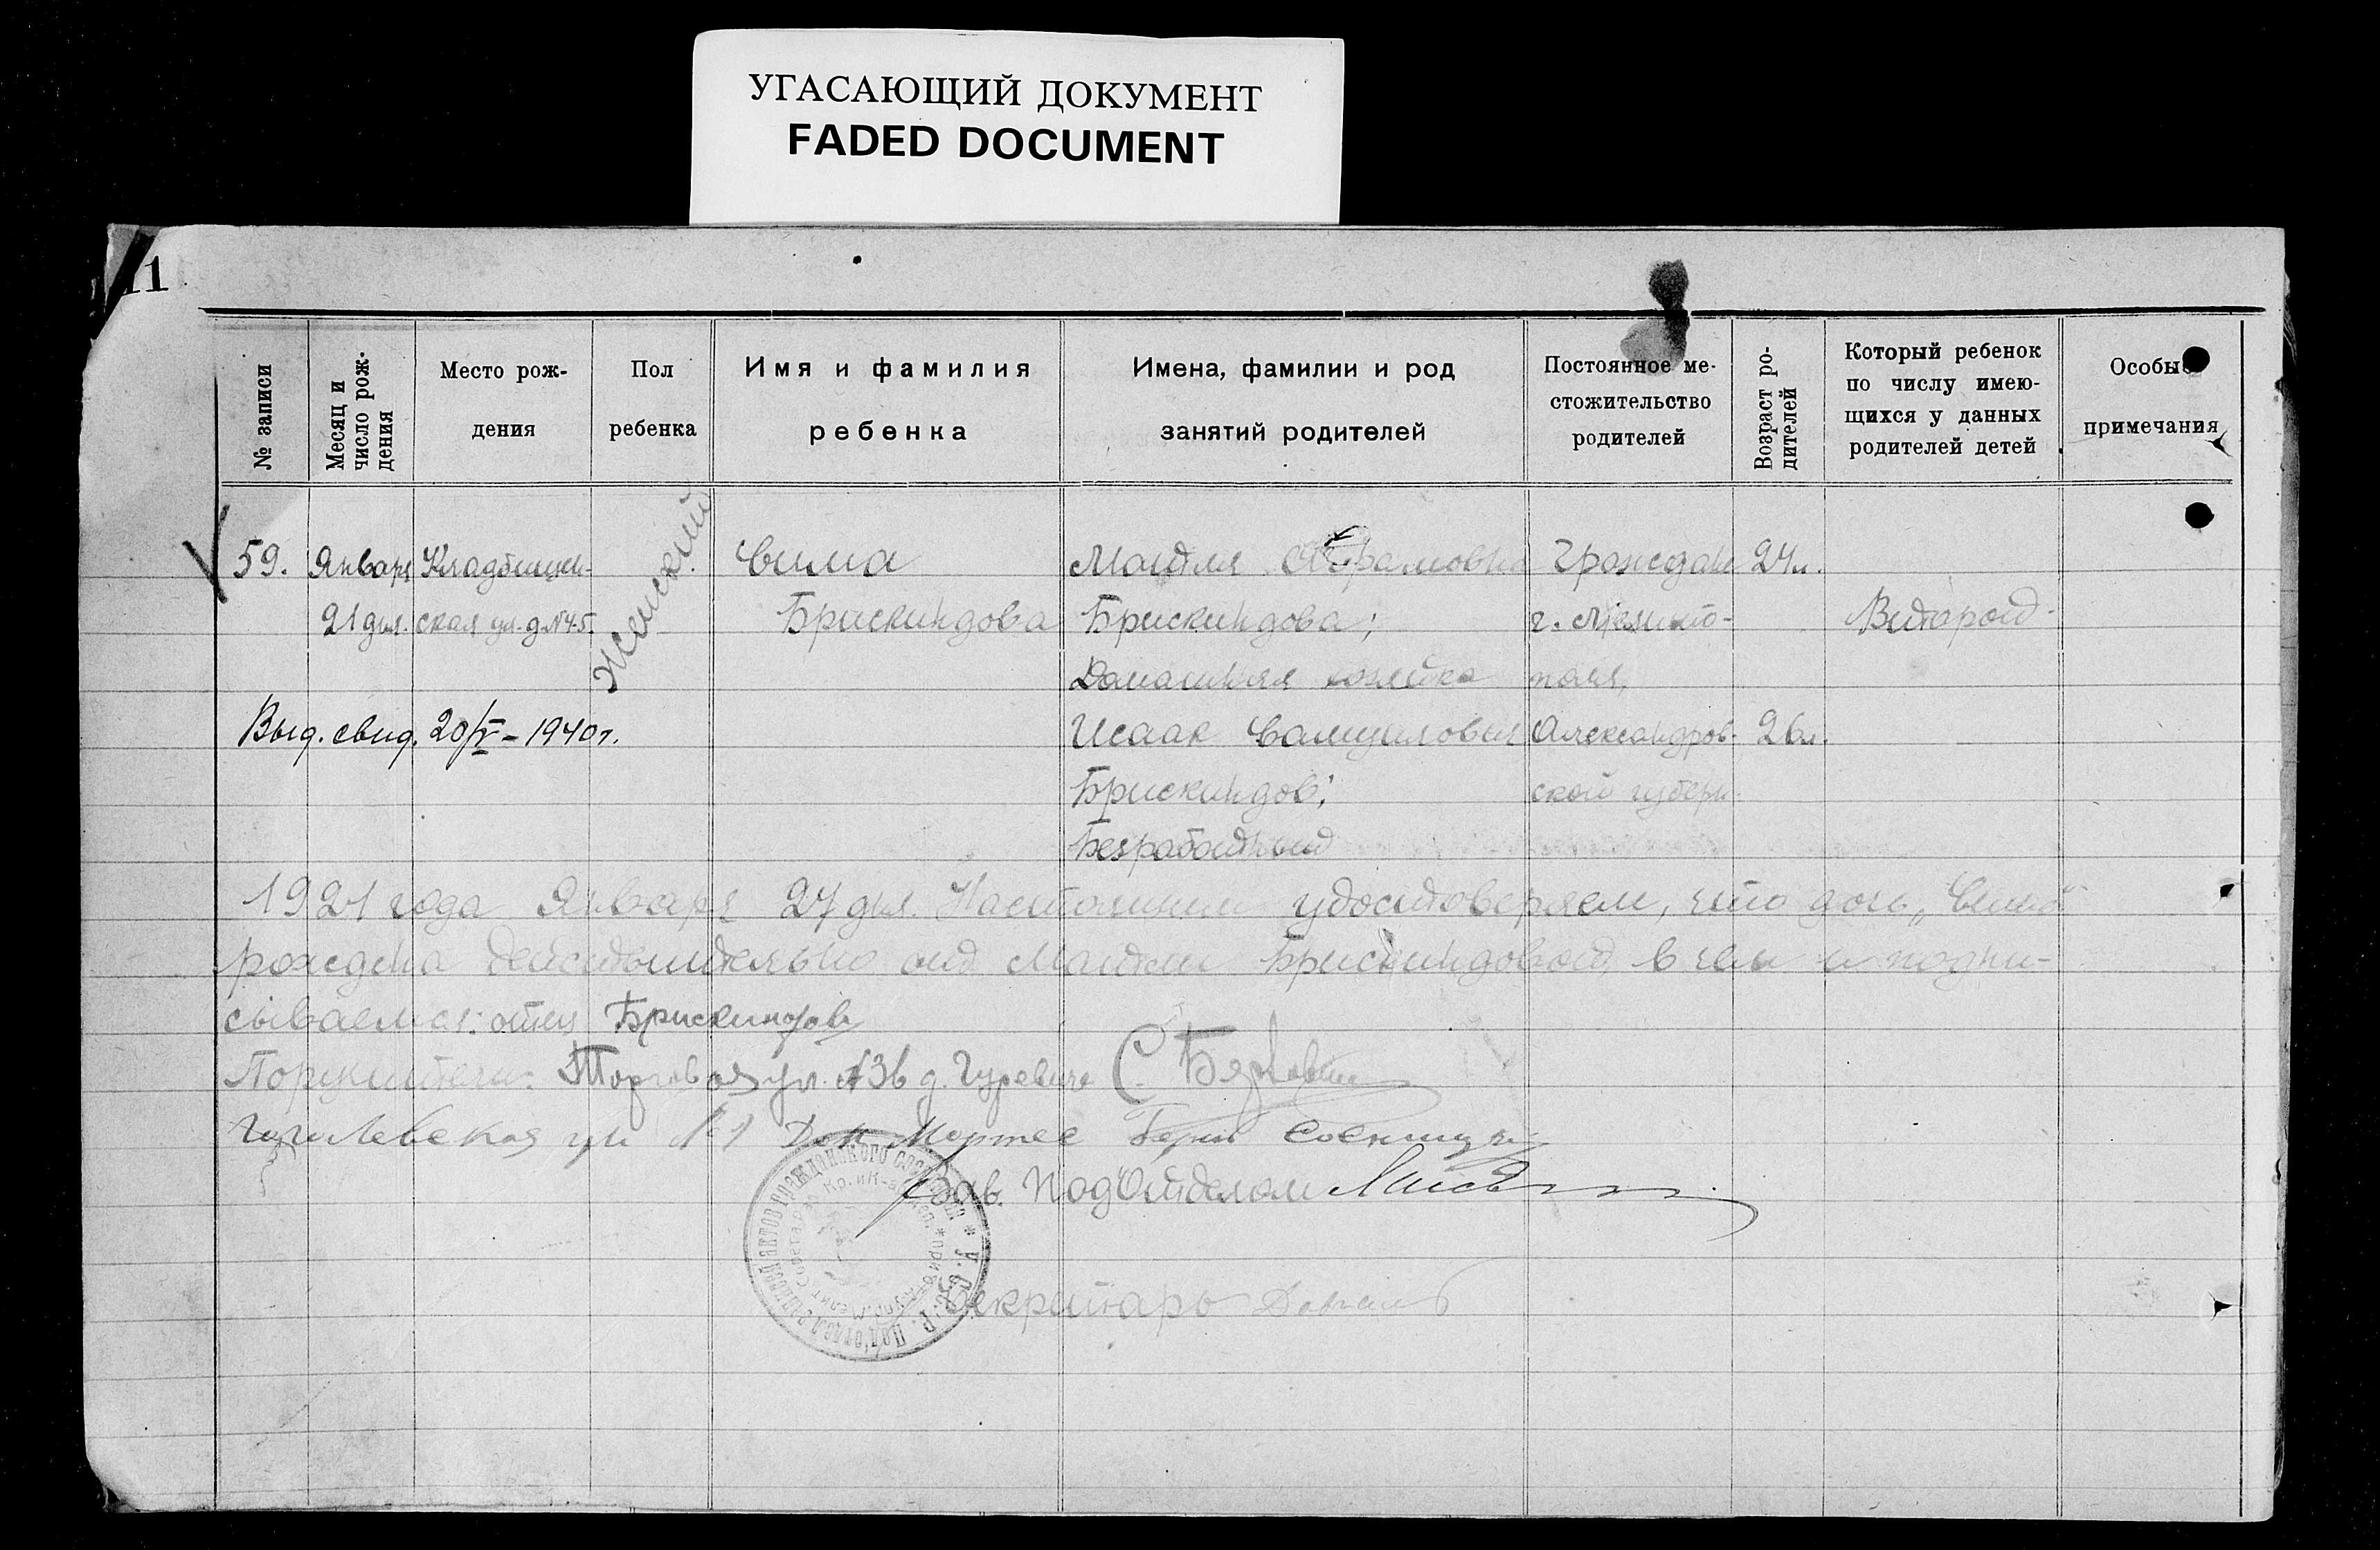 УГАСАЮЩИЙ ДОКУМЕНТ
FADED DOCUMENT
11
№ записи
Месяц и
число рож-
дения
Место рож-
дения
Пол
ребенка
Имя и фамилия
ребенка
Имена, фамилии и род
занятий родителей
Постоянное ме-
стожительство
родителей
Возраст ро-
дителей
Который ребенок
по числу имею-
щихся у данных
родителей детей
Особые
примечания
59.
Января
21 дня.
Кладбищен-
ская ул. д. № 45.
женский
Сима
Брискиндова
Абрамовна
Брискиндова;
Домашняя хозяйка
Исаак
Брискиндов;
Безработный
Граждане
г. Мелито-
поля,
Александров-
ской губерн.
24 л.
26 л.
Второй
Выд. свид. 20/V – 1940 г.
1921 года Января 27 дня. Настоящим удостоверяем, что дочь „Сима"
рождена действительно от Брискиндовой, в чем и подпи-
сываемся: отец Брискиндов
Поручители: Торговая ул. 36 д. Гуревича С.
ул № 1 Дом
Зав. ПодОтделом
Секретарь
У.С.С.Р. Под'отдел записей актов гражданского состояния